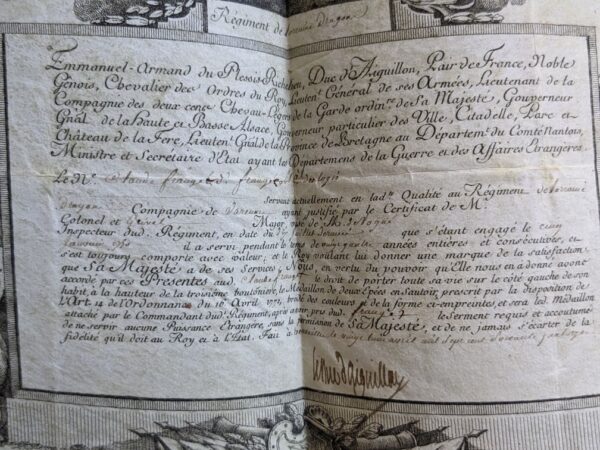 Régiment de Lorraine Dragon
Emmanuel-Armand du Plessis Richelieu, Duc d'Aiguillon, Pair de France, Noble
Génois, Chevalier des Ordres du Roy, Lieuten.t Général de ses Armées, Lieutenant de la
Compagnie des deux cens Chevau-Légers de la Garde ordin.re de Sa Majesté, Gouverneur
Gnāl. de la Haute et Basse Alsace, Gouverneur particulier des Ville, Citadelle, Parc et
Château de la Fere, Lieuten.t Gnāl. de la Province de Bretagne au Départem.t du Comté Nantois,
Ministre et Secretaire d'Etat ayant les Départemens de la Guerre et des Affaires Etrangeres.
Le N.é
Servant actuellement en lad.e Qualité au Régiment de Lorraine
dragon Compagnie de ayant justifié par le Certificat de M.r
Colonel et Major, visé de M.
Inspecteur dud. Régiment, en date du que s'étant engagé le cinq
il a servi pendant le tems de vingt quatre années entières et consécutives, et
s'est toujours comporté avec valeur; et le Roy voulant lui donner une marque de la satisfaction
que Sa Majesté a de ses Services, Nous, en vertu du pouvoir qu'Elle nous en a donné, avons
accordé par ces Présentes aud. le droit de porter toute sa vie sur le côté gauche de son
habit à la hauteur de la troisième boutonière, le Médaillon de deux Epées en Sautoir, prescrit par la disposition de
l'Art. 14 de l'Ordonnance du 16 Avril 1771, brodé des couleurs et de la forme ci-empreintes, et sera led. Médaillon
attaché par le Commandant dud. Régiment, après avoir pris dud. le Serment requis et accoutumé
de ne servir aucune Puissance Etrangere, sans la permission de Sa Majesté, et de ne jamais s'écarter de la
fidélité qu'il doit au Roy et à l'Etat. Fait à
le duc d'aiguillon